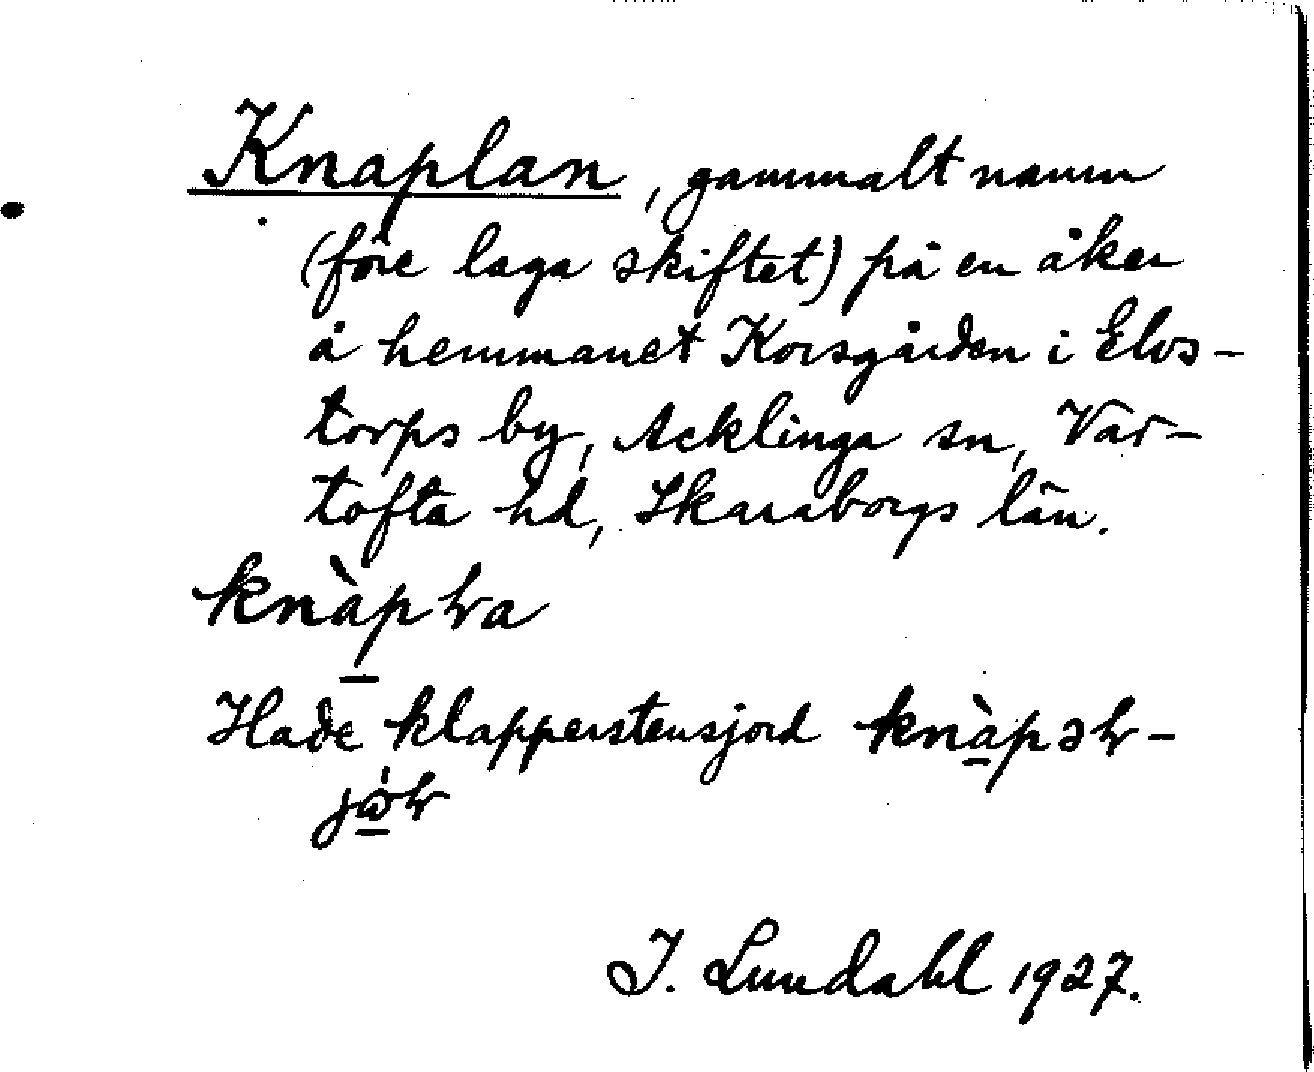 Knaplan, gammalt namn
(före laga skiftet) på en åker
å hemmanet Korsgården i Elvs-
torps by, Acklinga sn, Var-
tofta hd, Skaraborgs län.
knàpɬa
Hade klapperstensjord knàpəɬ-
jọ̀ɬ
I. Lundahl 1927.